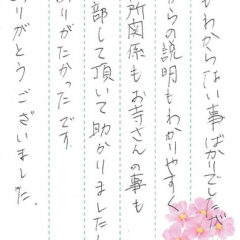 もわからない事ばかりでしたが
からの説明もわかりやすく
所関係もお寺さんの事も
部して頂いて助かりました
りがたかったです。
りがとうございました。